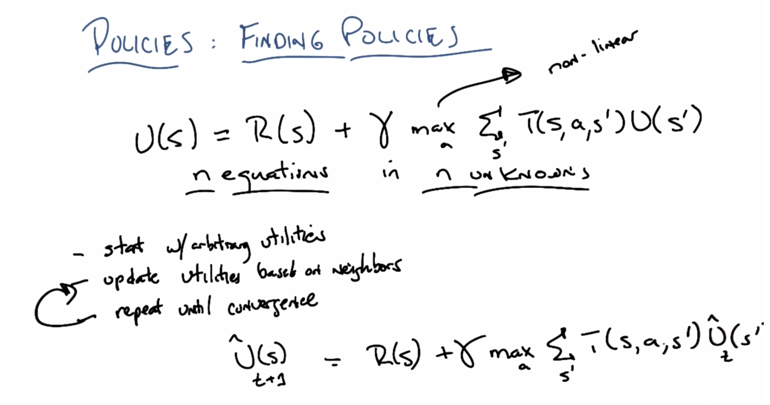 POLICIES: FINDING POLICIES
non-linear
U(s) = R(s) + γ max_a Σ_s' T(s,a,s')U(s')
n equations in n unknowns
- start w/ arbitrary utilities
- update utilities based on neighbors
- repeat until convergence
Û_{t+1}(s) = R(s) + γ max_a Σ_s' T(s,a,s') Û_t(s'